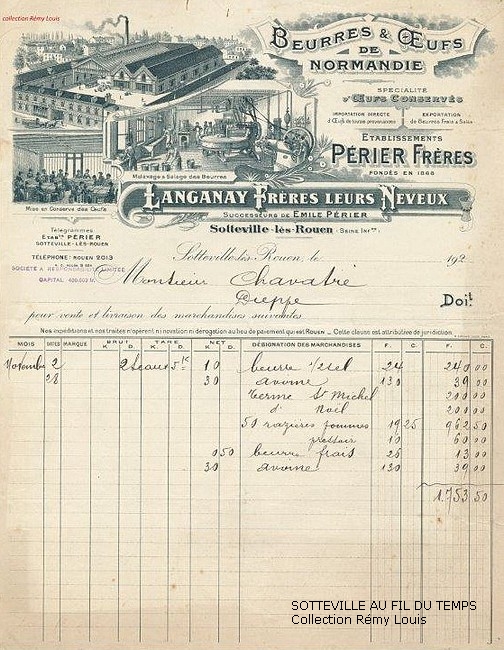 collection Rémy Louis
BEURRES & ŒUFS
DE
NORMANDIE
SPÉCIALITÉ
D'ŒUFS CONSERVÉS
IMPORTATION DIRECTE
d'Œufs de toutes provenances
EXPORTATION
de Beurres Frais & Salés
ETABLISSEMENTS
PÉRIER FRÈRES
FONDÉS EN 1868
Malaxage & Salage des Beurres
Mise en Conserve des Œufs
LANGANAY FRÈRES LEURS NEVEUX
SUCCESSEURS DE EMILE PÉRIER
Sotteville-lès-Rouen (SEINE INFre)
Télégrammes
ETABts PÉRIER
SOTTEVILLE-LÈS-ROUEN
TÉLÉPHONE: ROUEN 2013
SOCIÉTÉ A RESPONSABILITÉ LIMITÉE
CAPITAL
Sotteville-lès-Rouen, le 192
Monsieur Chavatré
Dieppe
Doit
pour vente et livraison des marchandises suivantes
Nos expéditions et nos traites n'opèrent ni novation ni dérogation au lieu de paiement qui est ROUEN _ Cette clause est attributive de juridiction
MOIS DATES MARQUE BRUT TARE NET DÉSIGNATION DES MARCHANDISES F. C. F. C.
K. D. K. D. K. D.
Novembre 2 2 Seaux 5 K 10 beurre 1/2 sel 24 240 00
28 30 avoine 130 39 00
Terme St Michel 200 00
d° Noël 200 00
50 razières pommes 19 25 962 50
pressoir 10 60 00
0 50 beurre frais 26 13 00
30 avoine 130 39 00
1.753 50
SOTTEVILLE AU FIL DU TEMPS
Collection Rémy Louis